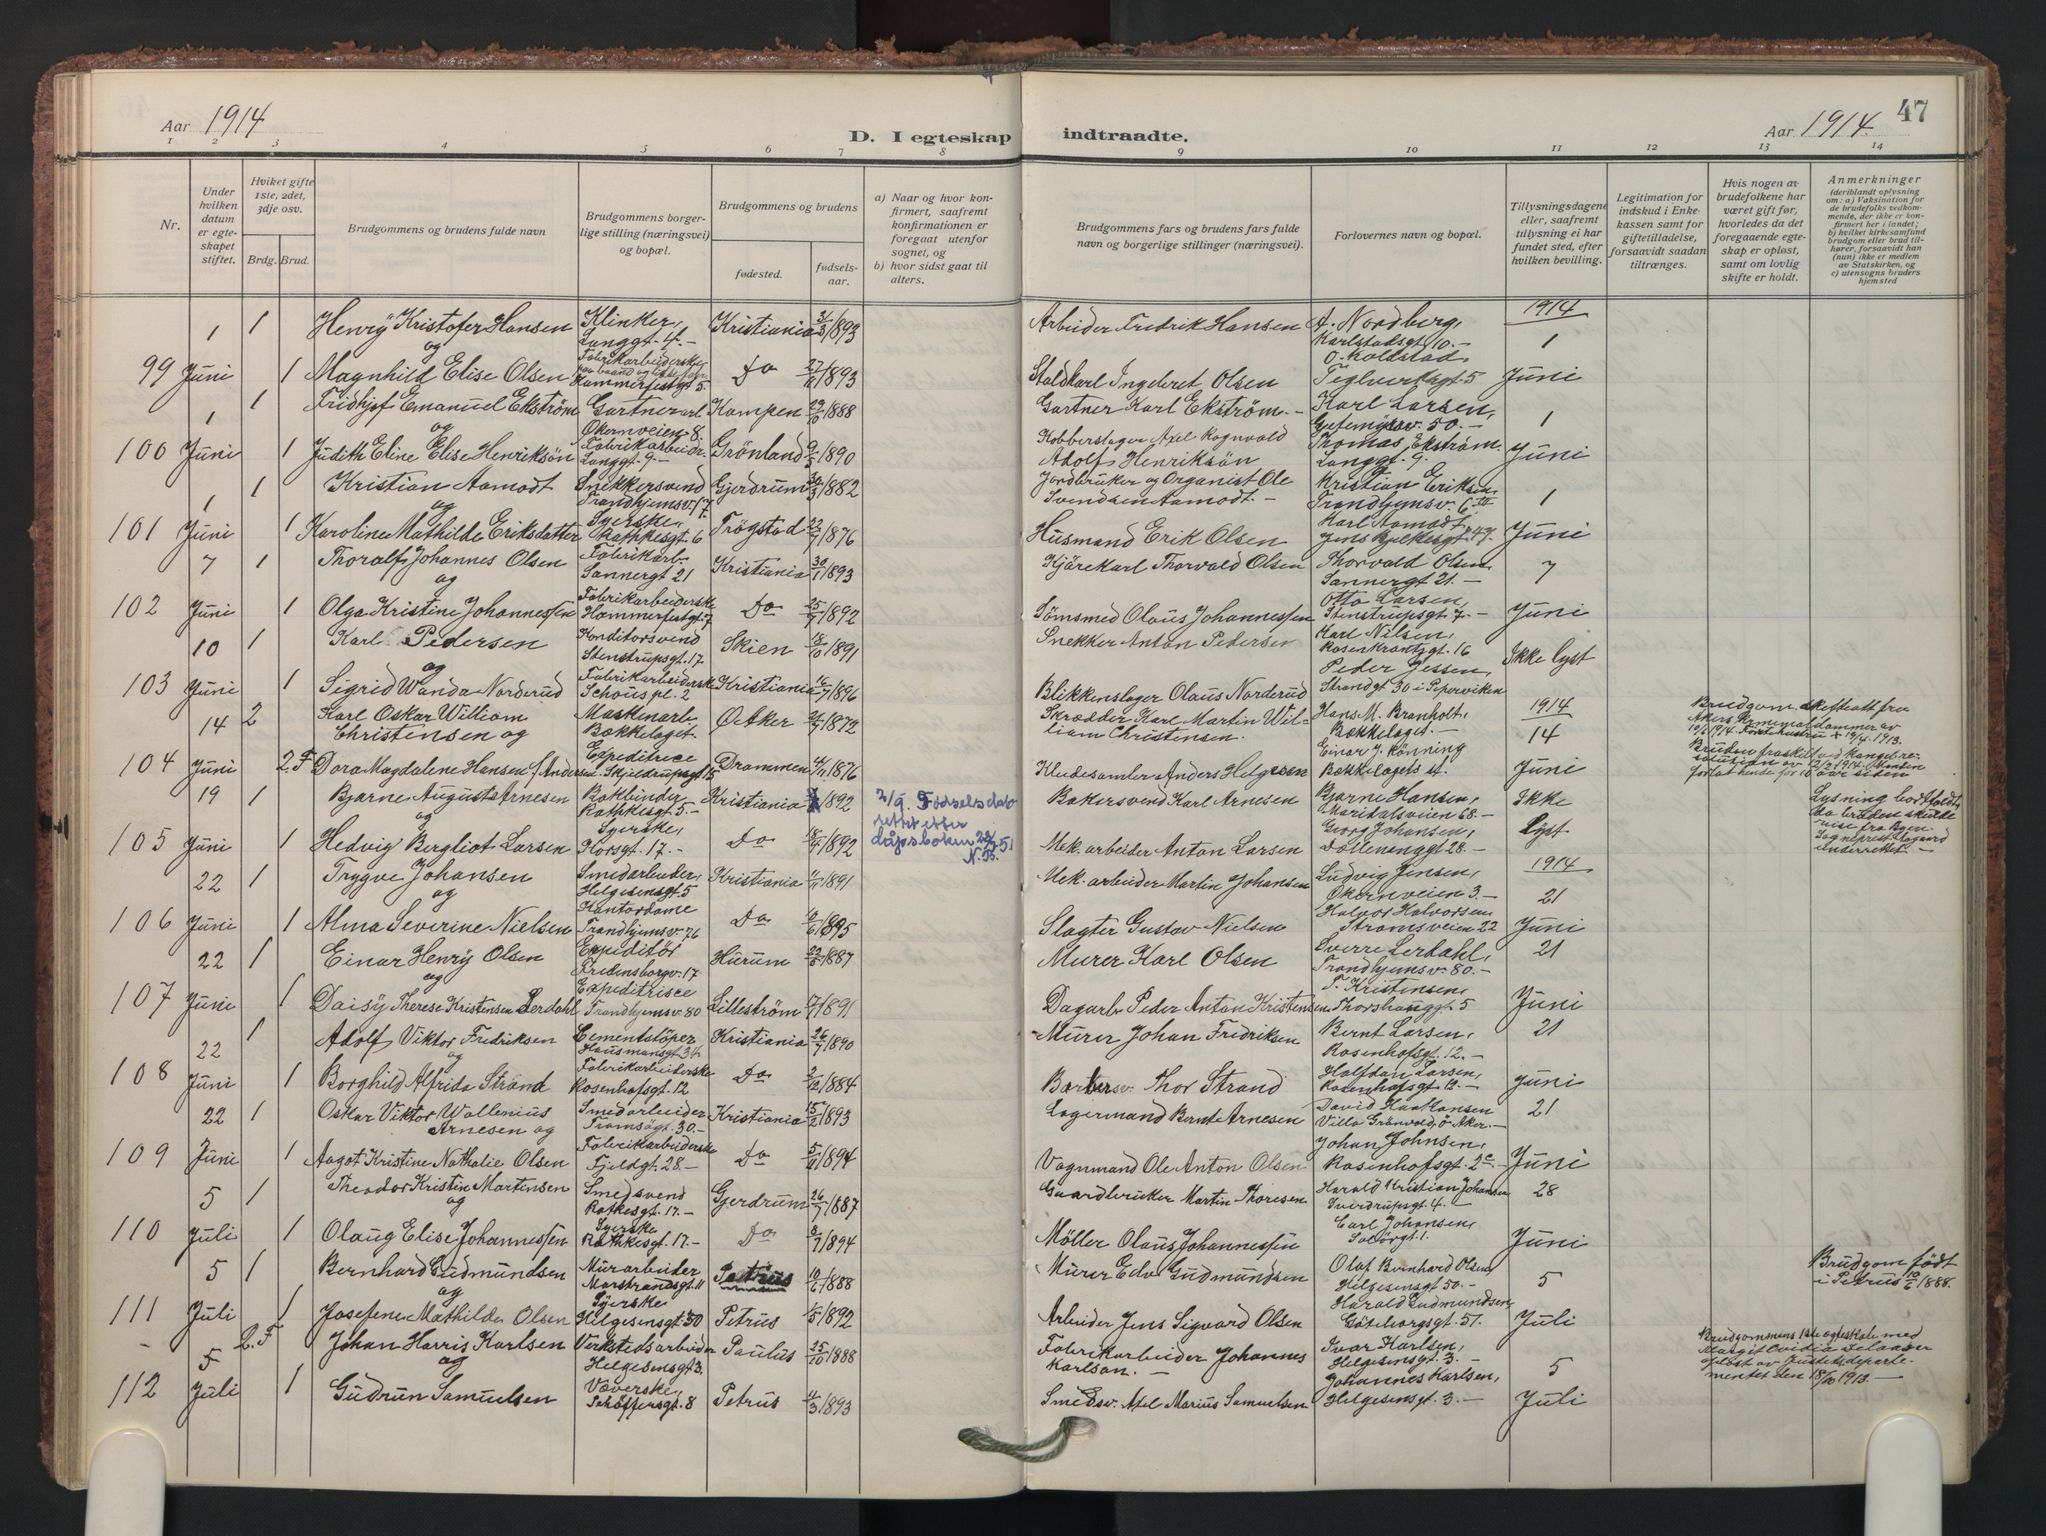 Aar 1914
D. I egteskap
indtraadte.
Aar 1914.
47
1 2 3 4 5 6 7 8 9 10 11 12 13 14
Nr.
Under hvilken datum er egteskapet stiftet.
Hviket gifte 1ste, 2det, 3dje osv.
Brdg. Brud.
Brudgommens og brudens fulde navn
Brudgommens borgerlige stilling (næringsvei) og bopæl.
Brudgommens og brudens
fødested.
fødselsaar.
a) Naar og hvor konfirmert, saafremt konfirmationen er foregaat utenfor sognet, og
b) hvor sidst gaat til alters.
Brudgommens fars og brudens fars fulde navn og borgerlige stillinger (næringsvei).
Forlovernes navn og bopæl.
Tillysningsdagene eller, saafremt tillysning ei har fundet sted, efter hvilken bevilling.
Legitimation for indskud i Enkekassen samt for giftetilladelse, forsaavidt saadan tiltrænges.
Hvis nogen av brudefolkene har været gift før, hvorledes da det foregaaende egteskap er opløst, samt om lovlig skifte er holdt.
Anmerkninger
(deriblandt oplysning om: a) Vaksination for de brudefolks vedkommende, der ikke er konfirmert her i landet; b) hvilket kirkesamfund brudgom eller brud tilhører, forsaavidt han (hun) ikke er medlem av Statskirken, og c) utensogns bruders hjemsted
99 1 Juni 1 Henry Kristofer Hansen Klinker, Langgt. 4.- Kristiania 31/3 1893 Arbeider Fredrik Hansen A. Nordberg, Karlstadsgt 10.- 1914 1
og
1 Magnhild Elise Olsen Fabrikarbeiderske Hammerfestgt 5 Do 27/ 1893 Staldkarl Ingebret Olsen O. Koldstad Teglverksgt 5 Juni
100 1 Juni 1 Fridhjof Emanuel Ekström Gartnerarb. Økernveien 8. Kampen 29/10 1888 Gartner Karl Ekström.- Karl Larsen, 50.- 1
og
1 Judith Eline Elise Henriksön Fabrikarbeidr. Langgt. 9.- Grönland 9/3 1890 Kobberslager Axel Rognvald Adolf Henriksön Thomas Ekström Langgt. 9. Juni
101 1 Juni 1 Kristian Aamodt Snekkersvend Trondhjemsv. 17. Gjerdrum 30/3 1882 Jordbruker og Organist Ole Svendsen Aamodt.- Kristian Eriksen Trondhjemsv. 6 III 1
og
1 Karoline Mathilde Eriksdatter Syerske, Rathkesgt 6 Trøgstad 22/7 1876 Husmand Erik Olsen Karl Aamodt, Jens Bjelkesgt. 47. Juni
102 7 Juni 1 Thoralf Johannes Olsen Fabrikarb. Sannergt 21 Kristiania 30/1 1893 Kjörekarl Thorvald Olsen Thorvald Olsen Sannergt 21.- 7
og
1 Olga Kristine Johannessen Fabrikarbeiderske Hammerfestgt. 7 Do 25/7 1892 Sömsmed Olaus Johannessen Otto Larsen, Stenstrupsgt. 7.- Juni
103 10 Juni 1 Karl Pedersen Konditorsvend Stenstrupsgt. 17 Skien 18/10 1891 Snekker Anton Pedersen Karl Nilsen, Rosenkrantzgt. 16 Ikke lyst
og
1 Sigrid Wanda Norderud Fabrikarbeiderske Schous pl. 2 Kristiania 16/7 1896 Blikkenslager Olaus Norderud Peder Jessen, Strandgt 30 i Pipervi­ken
104 14 Juni 2 Karl Oskar William Christensen og Maskinarb. Bækkelaget. Oebker 21/7 1872 Skrædder Karl Martin William Christensen. Hans M. Branholt, Bækkelaget.- 1914 14 Brudgom skifteatt fra Akers 10/6 1914. Forste hustru + 19/4. 1913.
2.F Dora Magdalene Hansen f. Andersen Expeditrice Skjeldrupsgt 15 Drammen 14/11 1876 Kludesamler Anders Helgesen Einar J. Rönning Bækkelagets st. Juni Bruden fraskilt ved kongel. resolution av 12/2 1914.
105 19 Juni 1 Bjarne August Arnesen Bokbinder, Rathkesgt. 5.- Kristiania 1892 2/9. Fødselsdato rettet efter dåpsboken 22/ 51 N.B. Bakersvend Karl Arnesen Bjarne Hansen, Maridalsveien 68.- Ikke Lysning bortfaldt,
og
1 Hedvig Bergliot Larsen Syerske, Korsgt. 17.- Do 18/4 1892 Mek. arbeider Anton Larsen Georg Johansen, gt 28.- Lyst
106 22 Juni 1 Trygve Johansen Smedarbeider, Helgesensgt. 5 Kristiania 11/11 1891 Mek. arbeider Martin Johansen Ludvig Jensen, Økernveien 3.- 1914 21
og
1 Alma Severine Nielsen Kontordame Trondhjemsv. 76 Do 6/6 1895 Slagter Gustav Nielsen Halvor Halvorsen Strömsveien 22 Juni
107 22 Juni 1 Einar Henry Olsen Expeditör Fredensborgv. 17 Hurum 22/8 1887 Murer Karl Olsen Sverre Lerdahl, Trondhjemsv. 80.- 21
og
1 Daisy Therese Kristensen Lerdahl Expeditrisce Trondhjemsv. 80 Lilleström 1891 Dagarb. Peder Anton Kristensen P. Kristensen, Thorshauggt. 5 Juni
108 22 Juni 1 Adolf Viktor Fredriksen Cementstöper Hausmansgt 34 Kristiania 26/7 1890 Murer Johan Fredriksen Bernt Larsen, Rosenhofsgt. 12.- 21
og
1 Borghild Alfrida Strand Fabrikarbeiderske Rosenhofsgt. 12 Do 2/12 1884 Barbersv. Thor Strand Halfdan Larsen, Rosenhofsgt 12.- Juni
109 22 Juni 1 Oskar Viktor Wallenius Arnesen og Smedarbeider Tromsögt. 30.- Kristiania 15/2 1893 Lagermand Bernt Arnesen David Haakonsen Villa Granvold, Ö. Aker.- 21
1 Aagot Kristine Nathalie Olsen Fabrikarbeiderske Fjeldgt. 28.- Do 5/11 1894 Vognmand Ole Anton Olsen Johan Johnsen, Rosenhofsgt. 2c.- Juni
110 5 Juli 1 Theodor Kristin Martinsen Smedsvend Ratkesgt. 17.- Gjerdrum 26/7 1887 Gaardbruker Martin Thoresen Harald Kristian Johansen Sverdrupsgt. 4.- 28
og
1 Olaug Elise Johannessen Syerske Rathkesgt. 17.- Do 8/7 1894 Möller Olaus Johannessen Carl Johansen, Solörgt. 1. Juni
111 5 Juli 1 Bernhard Gudmundsen Murarbeider Marstrandsgt. 11 Petrus 10/6 1888 Murer Edv. Gudmundsen Olaf Bernhard Olsen Helgesensgt 50.- 5 Brudgom født i Petrus 10/6 1888.
og
1 Josefine Mathilde Olsen Syerske Helgesensgt. 50 Petrus 1/5 1892 Arbeider Jens Sigvard Olsen Harald Gudmundsen, Göteborgsgt. 51. Juli
112 5 Juli 2.F Johan Harris Karlsen Verkstedsarbeider Helgesensgt 3. Paulus 25/10 1888 Fabrikarbeider Johannes Karlson.- Ivar Karlsen, Helgesensgt. 3.- 5 Brudgommens 1ste egteskab med Margit Ovidia oplöst av Justitsdepartementet den 18/10 1913.-
og
1 Gudrun Samuelsen Væverske, Schäffersgt. 8 Petrus 11/3 1893 Smedsv. Axel Marius Samuelsen Johannes Karlsen, Helgesensgt. 3.- Juli